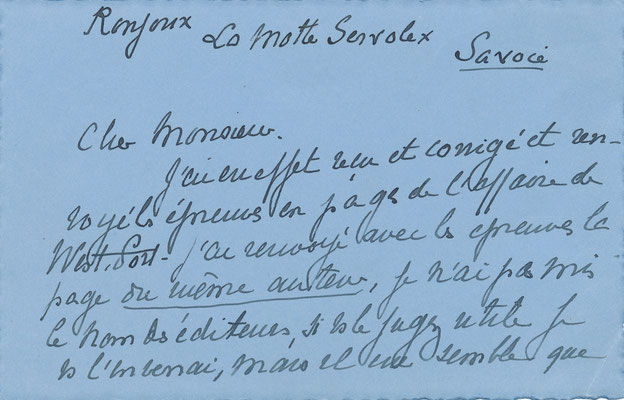 Ronjoux La Motte Servolex Savoie
Cher Monsieur.
J'ai en effet reçu et corrigé et ren-
voyé les épreuves en pages de l'affaire de
West-Port. j'ai renvoyé avec les épreuves la
page du même auteur, je n'ai pas mis
le nom des éditeurs, si
mais il me semble que